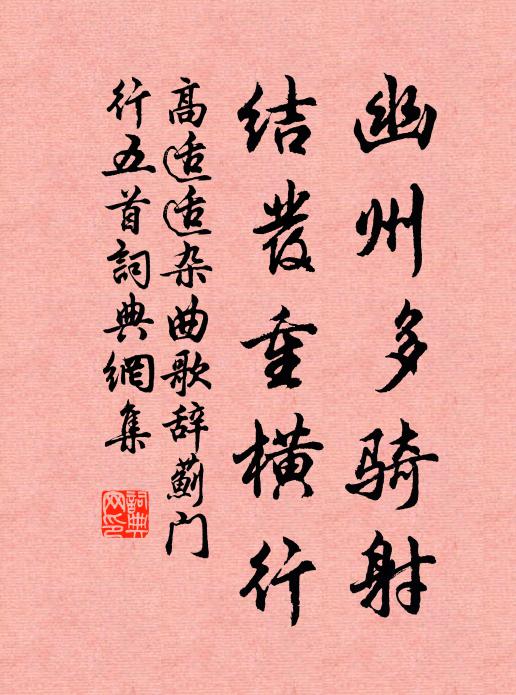 幽州多骑射
结发重横行
高适适杂曲歌辞蓟门
行五首词典网集
詞典网印